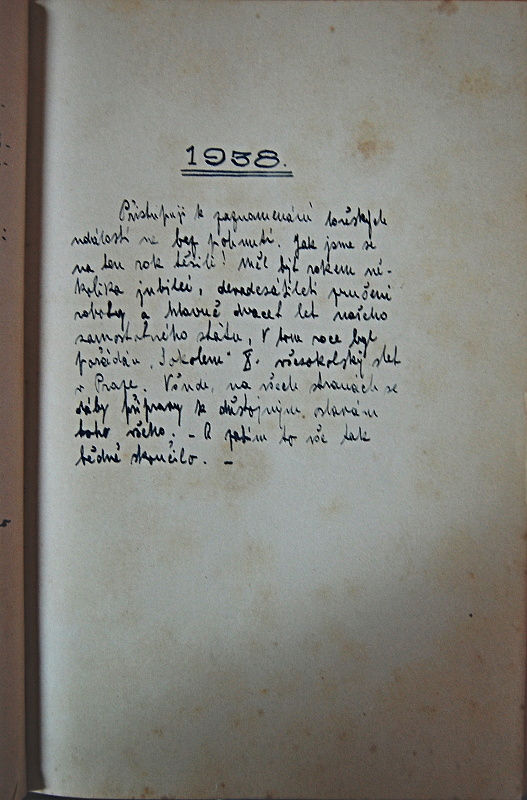 1938.
Přistupuji k zaznamenání loňských
událostí ne bez pohnutí. Jak jsme se
na ten rok těšili! Měl být rokem ně-
kolika jubileí, devadesátiletí zrušení
roboty a hlavně dvacet let našeho
samostatného státu. V tom roce byl
pořádán „Sokolem" X. všesokolský slet
v Praze. Všude, na všech stranách se
dály přípravy k důstojným oslavám
toho všeho. – A zatím to vše tak
bědně skončilo. –